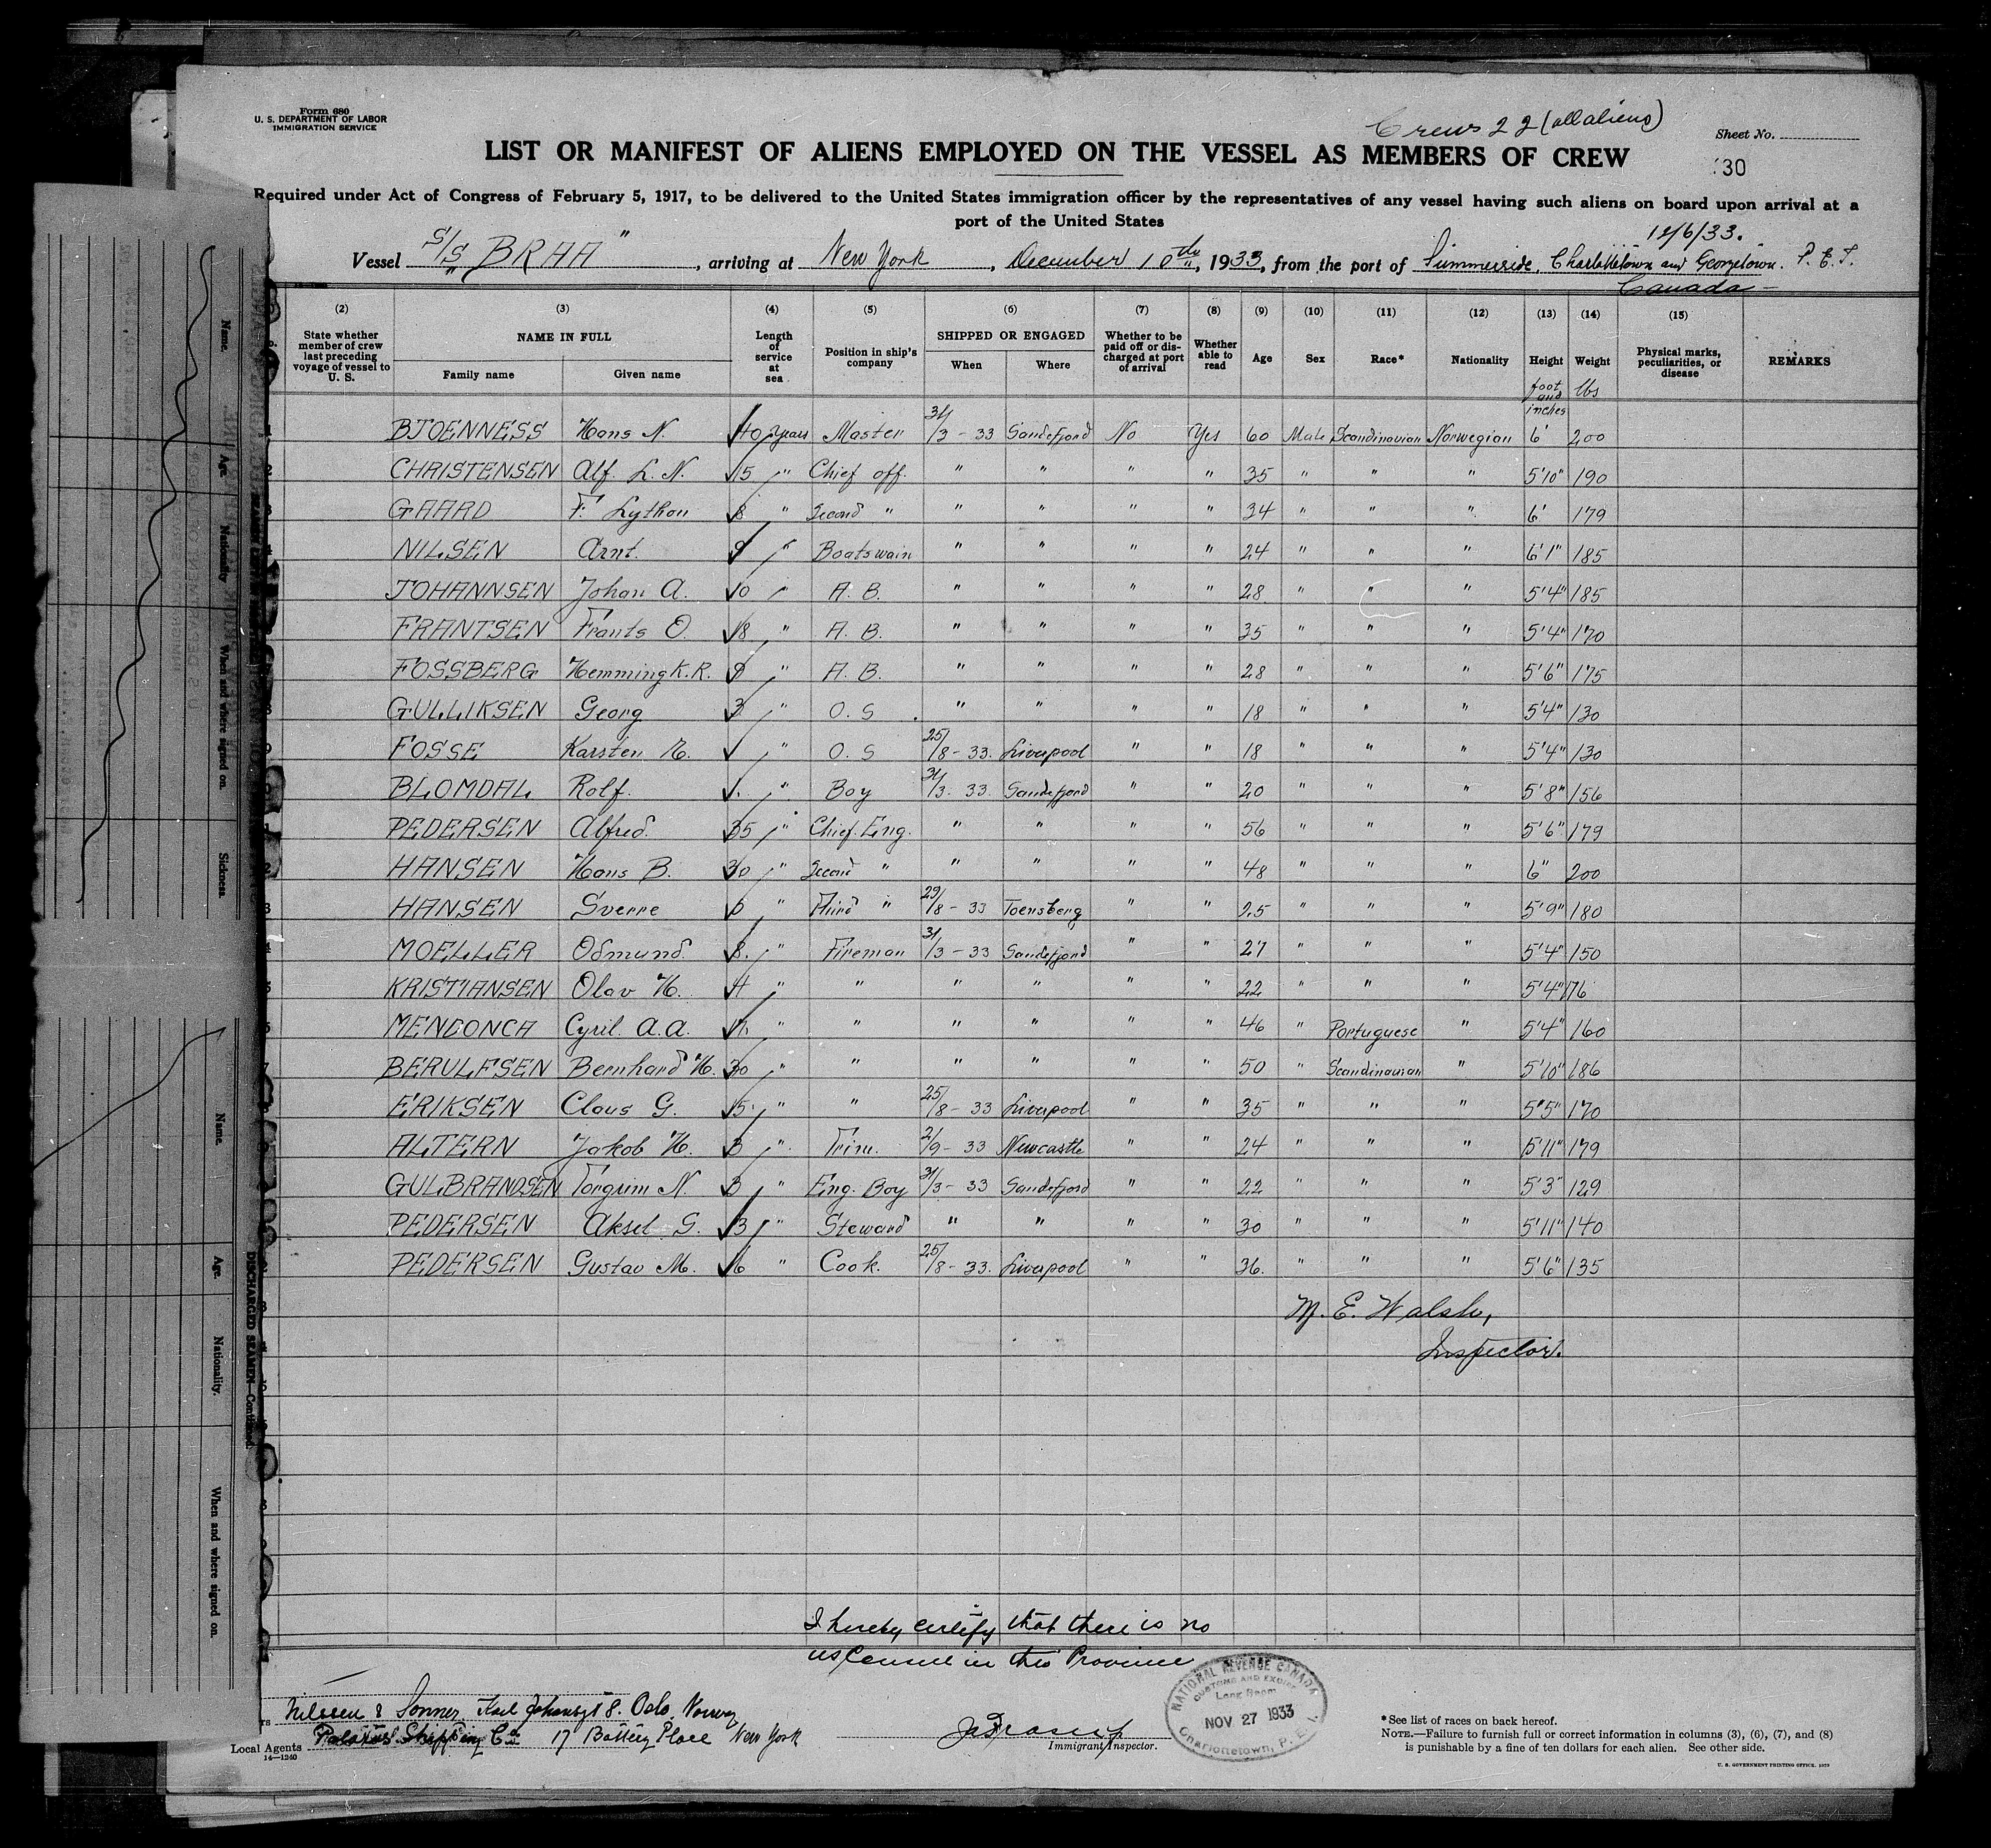 Form 680
U. S. DEPARTMENT OF LABOR
IMMIGRATION SERVICE
Crews 22 (all aliens)
Sheet No.
30
LIST OR MANIFEST OF ALIENS EMPLOYED ON THE VESSEL AS MEMBERS OF CREW
Required under Act of Congress of February 5, 1917, to be delivered to the United States immigration officer by the representatives of any vessel having such aliens on board upon arrival at a
port of the United States
12/6/33.
Vessel S/S "BRAA", arriving at New York, December 10th, 1933, from the port of Summerside, Charlottetown and Georgetown. P. E. I.
Canada
(2) (3) (4) (5) (6) (7) (8) (9) (10) (11) (12) (13) (14) (15)
State whether member of crew last preceding voyage of vessel to U. S. NAME IN FULL Family name Given name Length of service at sea Position in ship's company SHIPPED OR ENGAGED When Where Whether to be paid off or discharged at port of arrival Whether able to read Age Sex Race* Nationality Height Weight Physical marks, peculiarities, or disease REMARKS
foot and inches lbs
BJOENNESS Hans N. 40 years Master 31/3 - 33 Sandefjord No Yes 60 Male Scandinavian Norwegian 6' 200
CHRISTENSEN Alf. L. N. 15 " Chief off. " " " " 35 " " " 5'10" 190
GAARD F. Lython 8 " Second " " " " " 34 " " " 6' 179
NILSEN Arnt. 9 " Boatswain " " " " 24 " " " 6'1" 185
JOHANNSEN Johan A. 10 " A. B. " " " " 28 " " " 5'4" 185
FRANTSEN Frants O. 18 " A. B. " " " " 35 " " " 5'4" 170
FOSSBERG Hemming K. R. 9 " A. B. " " " " 28 " " " 5'6" 175
GULLIKSEN Georg 3 " O. S. " " " " 18 " " " 5'4" 130
FOSSE Karsten H. " O. S 25/8 - 33. Liverpool " " 18 " " " 5'4" 130
BLOMDAL Rolf. 1. " Boy 31/3. 33. Sandefjord " " 20 " " " 5'8" 156
PEDERSEN Alfred. 35 " Chief. Eng. " " " " 56 " " " 5'6" 179
HANSEN Hans B. 30 " Second " " " " " 48 " " " 6" 200
HANSEN Sverre 6 " Third " 29/8 - 33 Toensberg " " 25 " " " 5'9" 180
MOELLER Odmund. 8. " Fireman 31/3 - 33 Sandefjord " " 27 " " " 5'4" 150
KRISTIANSEN Olav H. 4 " " " " " " 22 " " " 5'4" 176
MENDONCA Cyril. A. A. " " " " " " 46 " Portuguese " 5'4" 160
BERULFSEN Bernhard H. 30 " " " " " " 50 " Scandinavian " 5'10" 186
ERIKSEN Claus G. 15. " " 25/8 - 33 Liverpool " " 35 " " " 5'5" 170
ALTERN Jakob H. 3 " Trim. 2/9 - 33 Newcastle " " 24 " " " 5'11" 179
GULBRANDSEN Torgrim N. 3 " Eng. Boy 31/3 - 33 Sandefjord " " 22 " " " 5'3" 129
PEDERSEN Aksel G. 13 " Steward " " " " 30 " " " 5'11" 140
PEDERSEN Gustav M. 16 " Cook. 25/8 - 33. Liverpool " " 36. " " " 5'6" 135
M. E. Walsh,
Inspector.
I hereby certify that there is no
US Consul in this Province
Nilssen & Sonner, Karl Johansgt 8. Oslo. Norway
Local Agents Shipping Co 17 Battery Place New York
14—1240
Immigrant Inspector.
NATIONAL REVENUE CANADA
CUSTOMS AND EXCISE
Long Room
NOV 27 1933
Charlottetown, P. E. I.
*See list of races on back hereof.
NOTE.—Failure to furnish full or correct information in columns (3), (6), (7), and (8)
is punishable by a fine of ten dollars for each alien. See other side.
U. S. GOVERNMENT PRINTING OFFICE. 1929
Name.
Age.
Nationality
When and where signed on.
Sickness.
Name.
Age.
Nationality.
When and where signed on.
DISCHARGED SEAMEN—Continued.